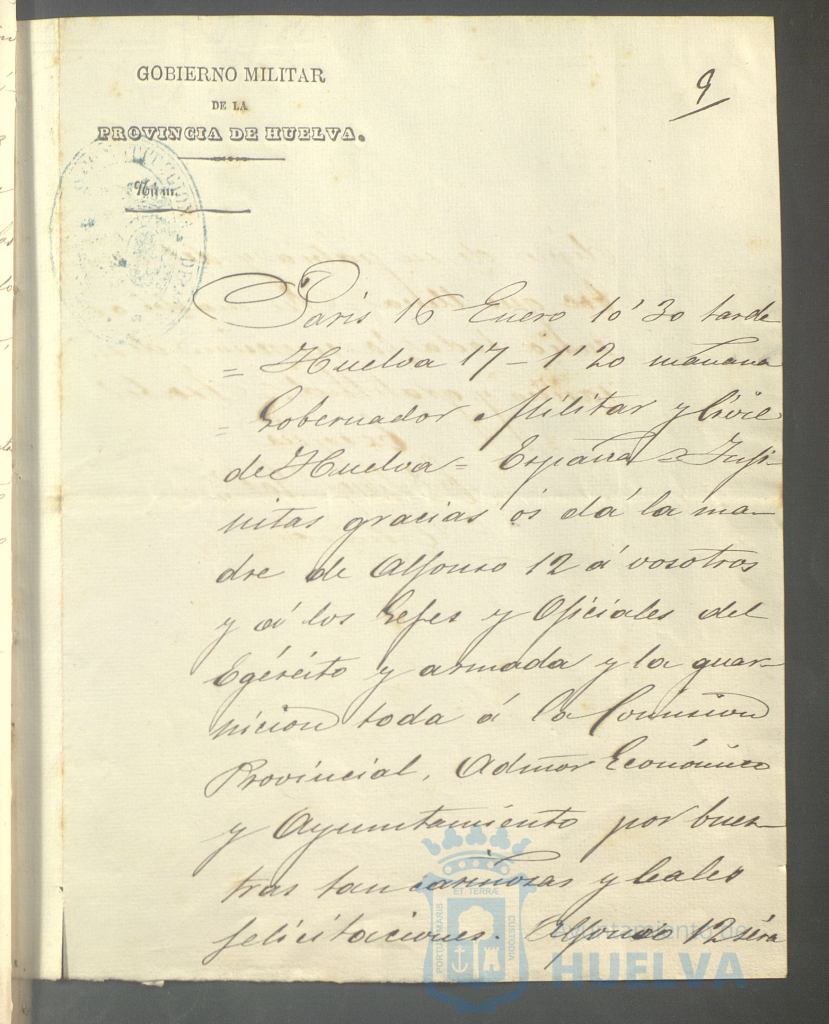 GOBIERNO MILITAR
DE LA
PROVINCIA DE HUELVA.
Núm.
9
Paris 16 Enero 10'30 tarde
= Huelva 17 - 1'20 mañana
= Gobernador Militar y Civil
de Huelva = España = Infi-
nitas gracias ós dá la ma-
dre de Alfonso 12 á vosotros
y á los Gefes y Oficiales del
Egército y armada y la guar-
nicion toda á la Comision
Provincial, Admor Económico
y Ayuntamiento por bues-
tras tan cariñosas y leales
felicitaciones. Alfonso 12 será
PORTUS MARIS ET TERRÆ CUSTODIA
Ayuntamiento de
HUELVA